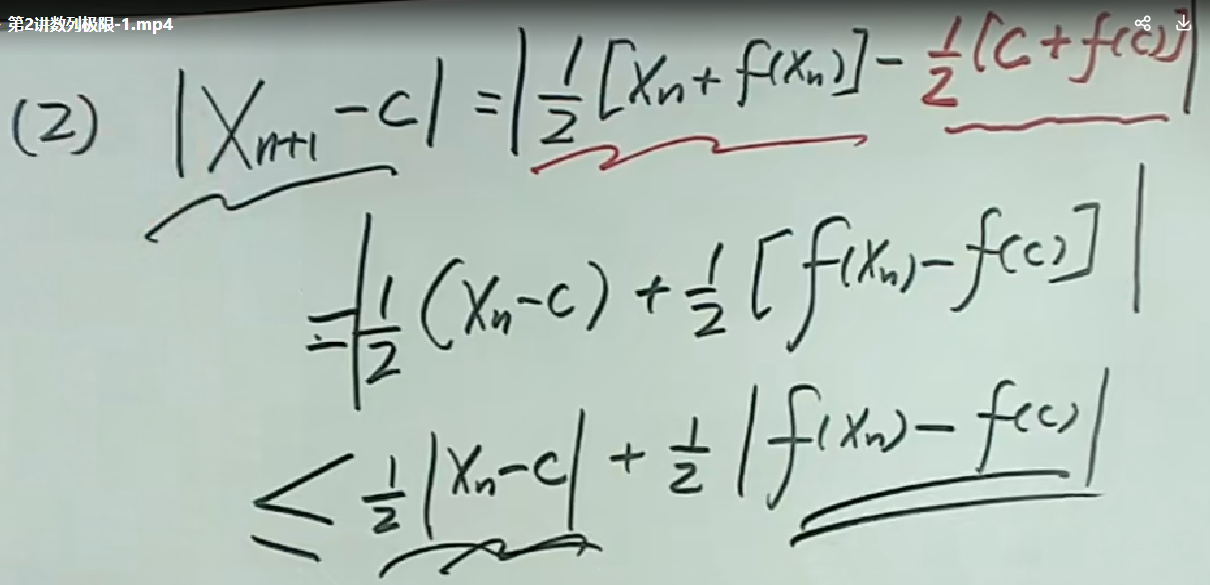 第2讲数列极限-1.mp4
(2) |Xₙ₊₁ - C| = |½[Xₙ + f(Xₙ)] - ½[C + f(C)]|
= |½(Xₙ - C) + ½[f(Xₙ) - f(C)]|
≤ ½|Xₙ - C| + ½|f(Xₙ) - f(C)|